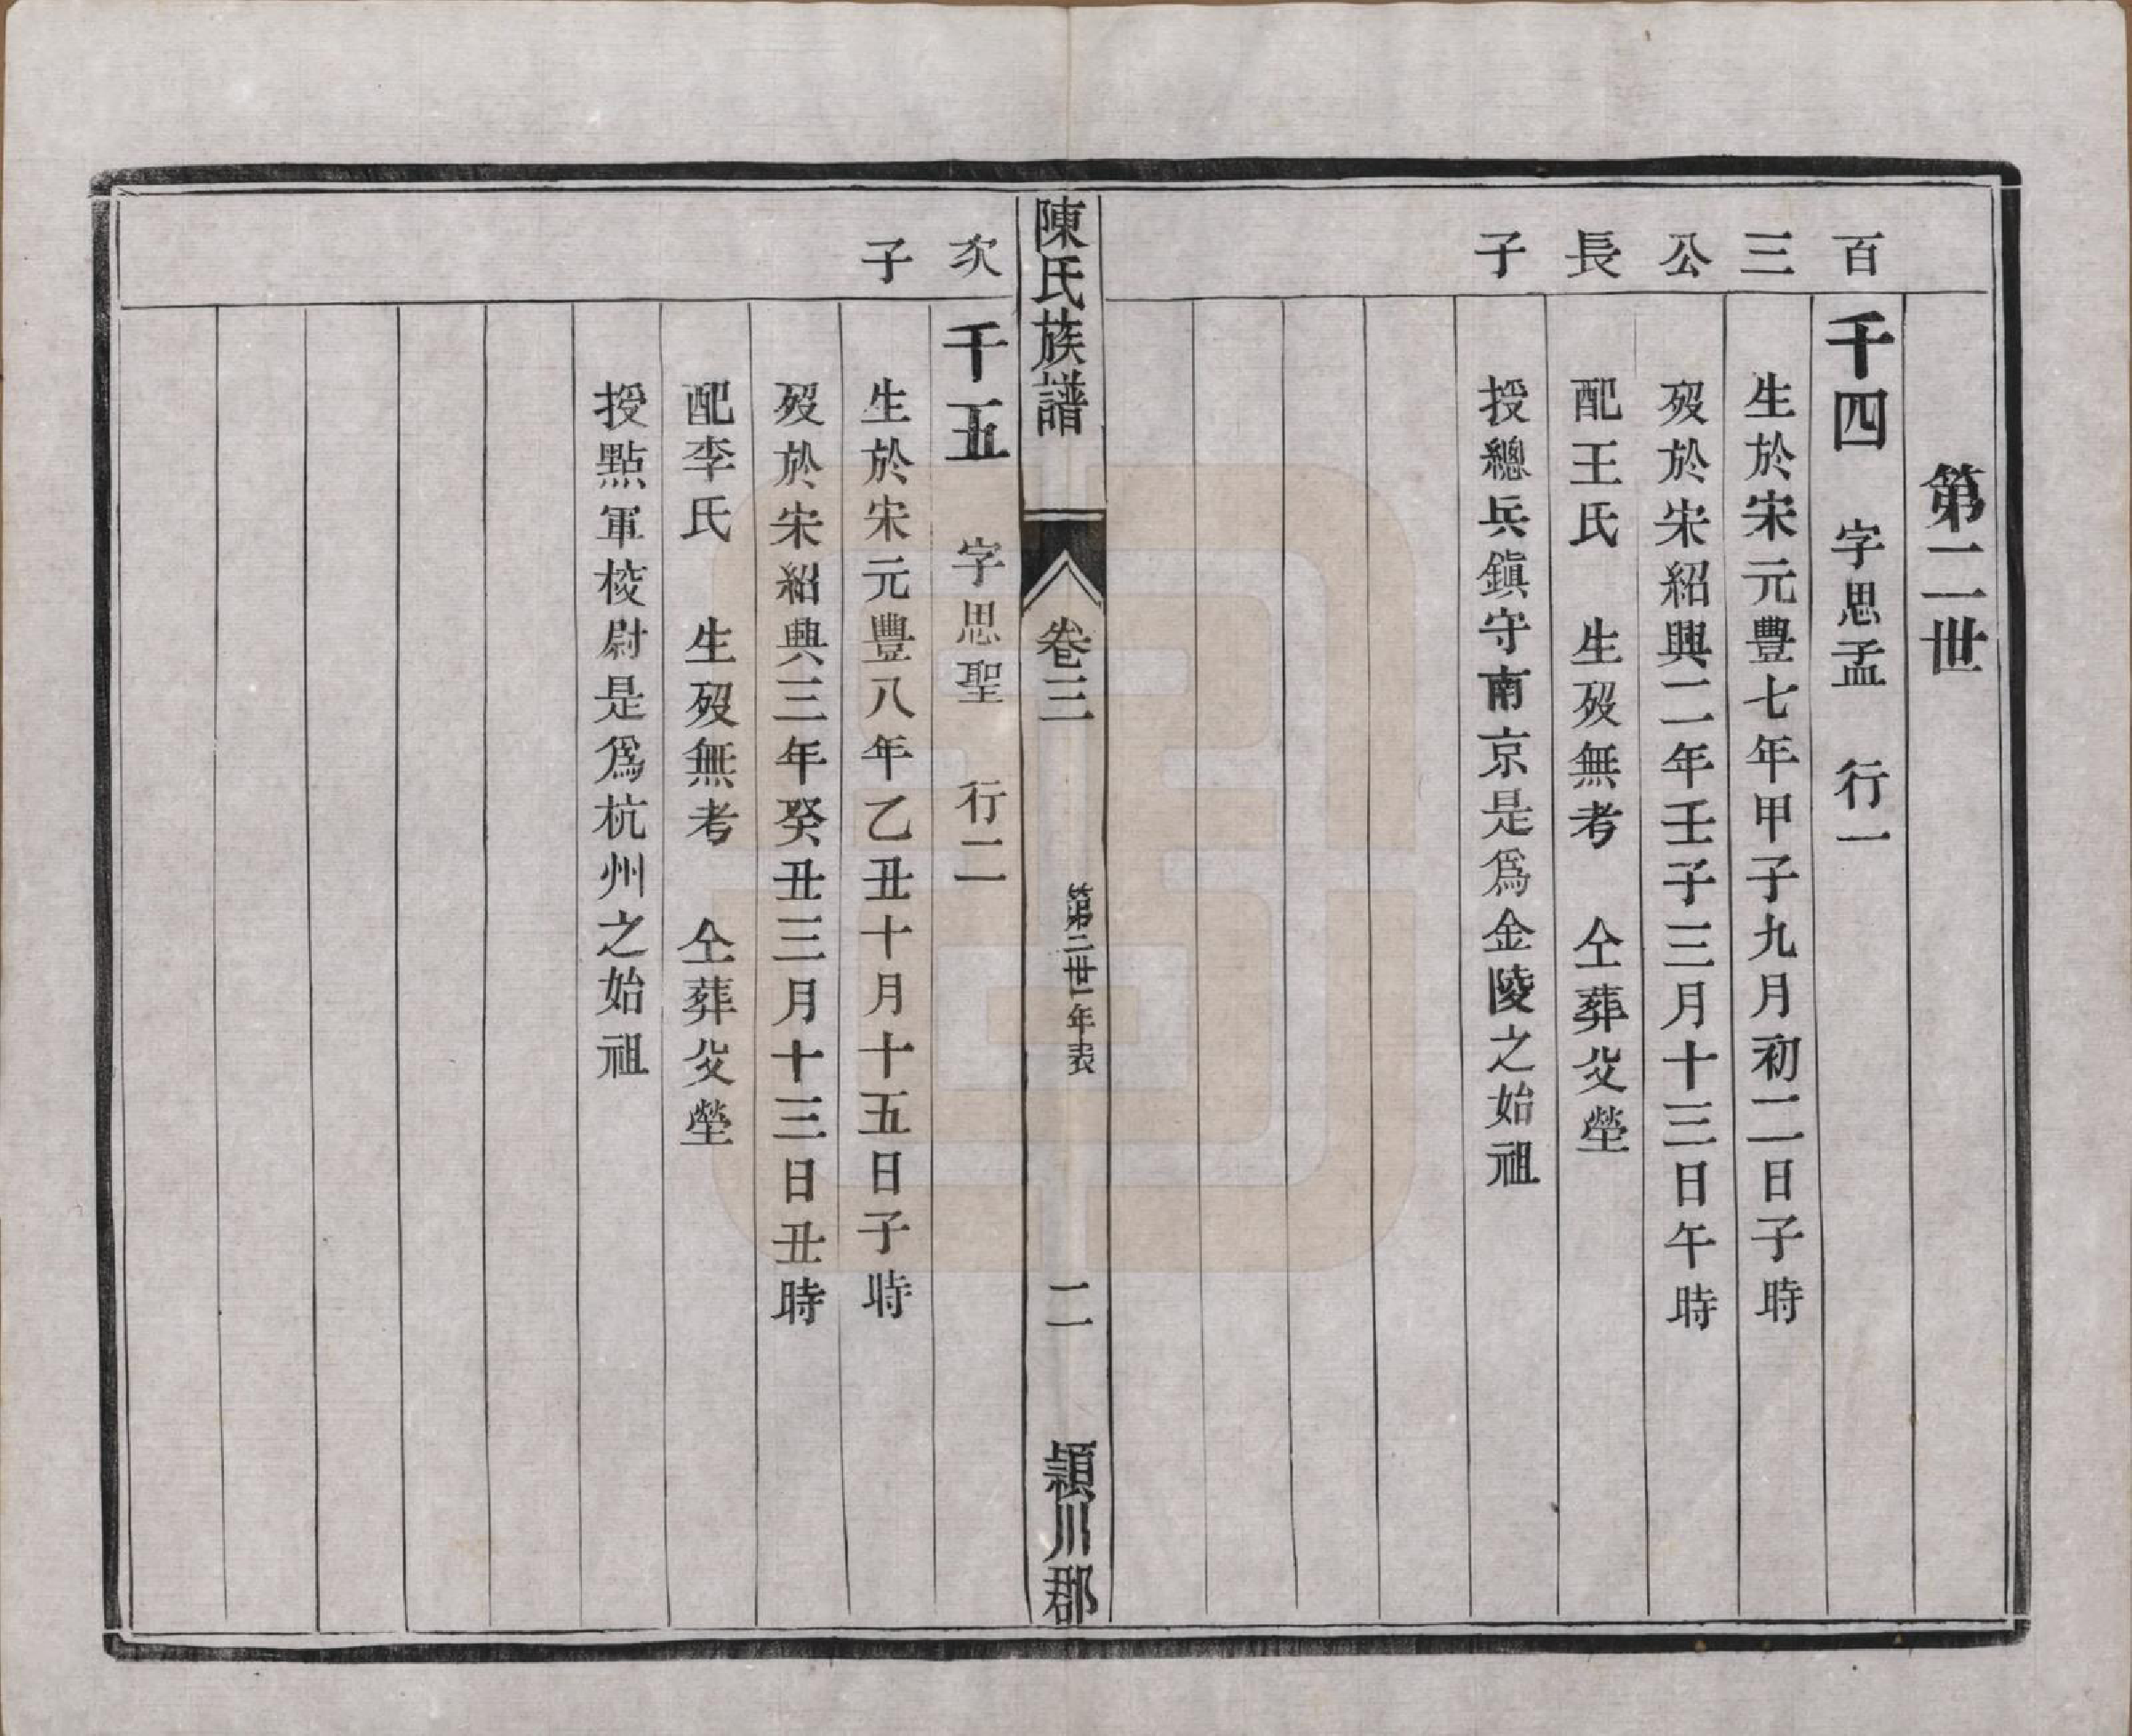 第二世
百三公長子
千四　字思孟　行一
生於宋元豐七年甲子九月初二日子時
歿於宋紹興二年壬子三月十三日午時
配王氏　生歿無考　仝葬父塋
授總兵鎮守南京是爲金陵之始祖
陳氏族譜　卷三　第二世年表　二　潁川郡
次子
千五　字思聖　行二
生於宋元豐八年乙丑十月十五日子時
歿於宋紹興三年癸丑三月十三日丑時
配李氏　生歿無考　仝葬父塋
授點軍校尉是爲杭州之始祖